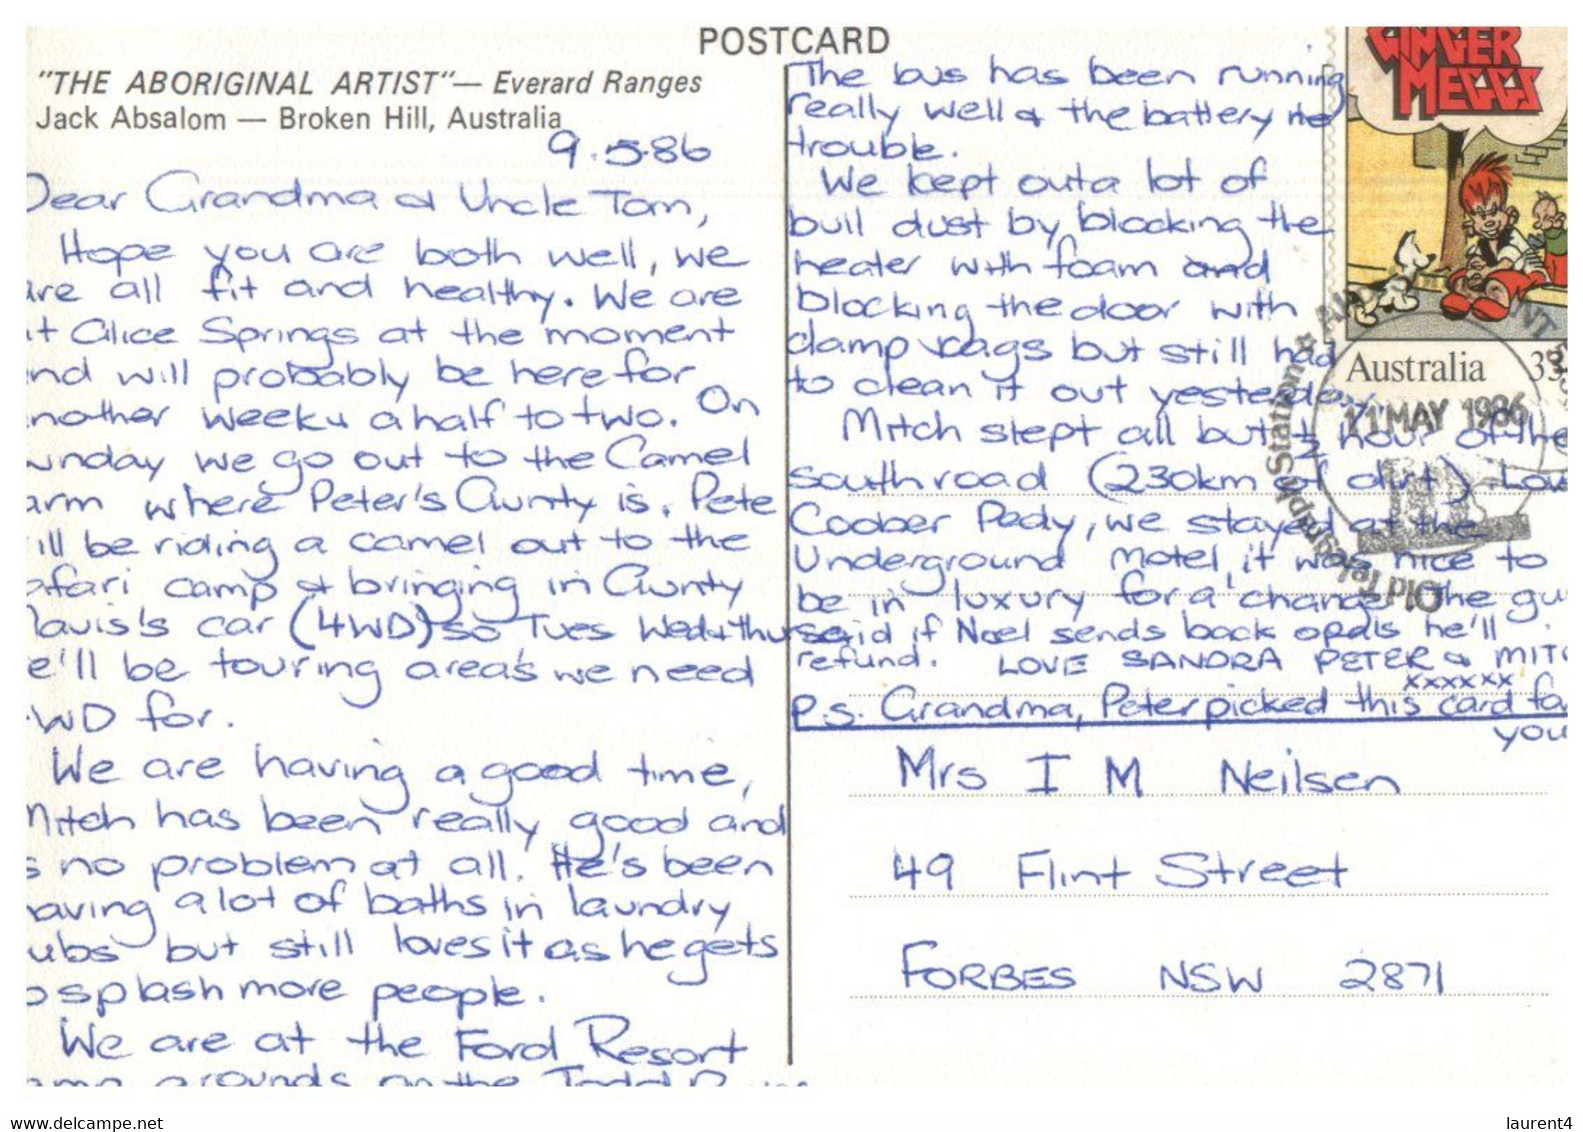 POSTCARD
"THE ABORIGINAL ARTIST"— Everard Ranges
Jack Absalom — Broken Hill, Australia
9.5.86
Dear Grandma & Uncle Tom,
Hope you are both well, we
are all fit and healthy. We are
at Alice Springs at the moment
and will probably be here for
another week & a half to two. On
unday we go out to the Camel
arm where Peter's Aunty is. Pete
ill be riding a camel out to the
afari camp & bringing in Aunty
avis's car (4WD) so Tues Wed & thurs
e'll be touring area's we need
WD for.
We are having a good time,
Mitch has been really good and
s no problem at all. He's been
aving a lot of baths in laundry
ubs but still loves it as he gets
o splash more people.
We are at the Ford Resort
grounds on the Todd
The bus has been running
really well & the battery no
trouble.
We kept out a lot of
bull dust by blocking the
heater with foam and
blocking the door with
damp rags but still had
to clean it out yesterday.
Mitch slept all but ½ hour of the
south road (230km of dirt)
Coober Pedy, we stayed at the
Underground Motel, it was nice to
be in luxury for a change. The gu
said if Noel sends back opals he'll
refund. LOVE SANDRA PETER & MITC
xxxxxx
P.S. Grandma, Peter picked this card fo
you
Mrs I M Neilsen
49 Flint Street
FORBES NSW 2871
GINGER
MEGGS
Australia 33
11 MAY 1986
Old Telegraph Station
Are you looking for more? Visit www.delcampe.net
laurent4